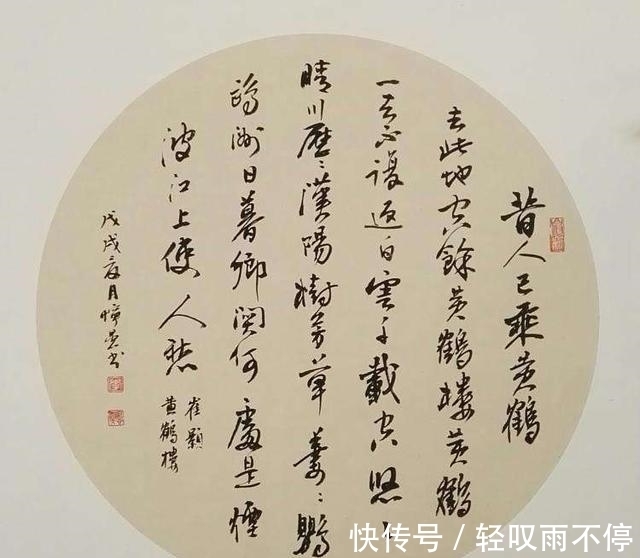 昔人已乘黄鶴
去此地空餘黄鶴樓黄鶴
一去不復返白雲千載空悠々
晴川歷々漢陽樹芳草萋々鸚
鵡洲日暮鄉関何處是煙
波江上使人愁
崔顥
黄鶴樓
戊戌夏月书
快传号 / 轻叹雨不停